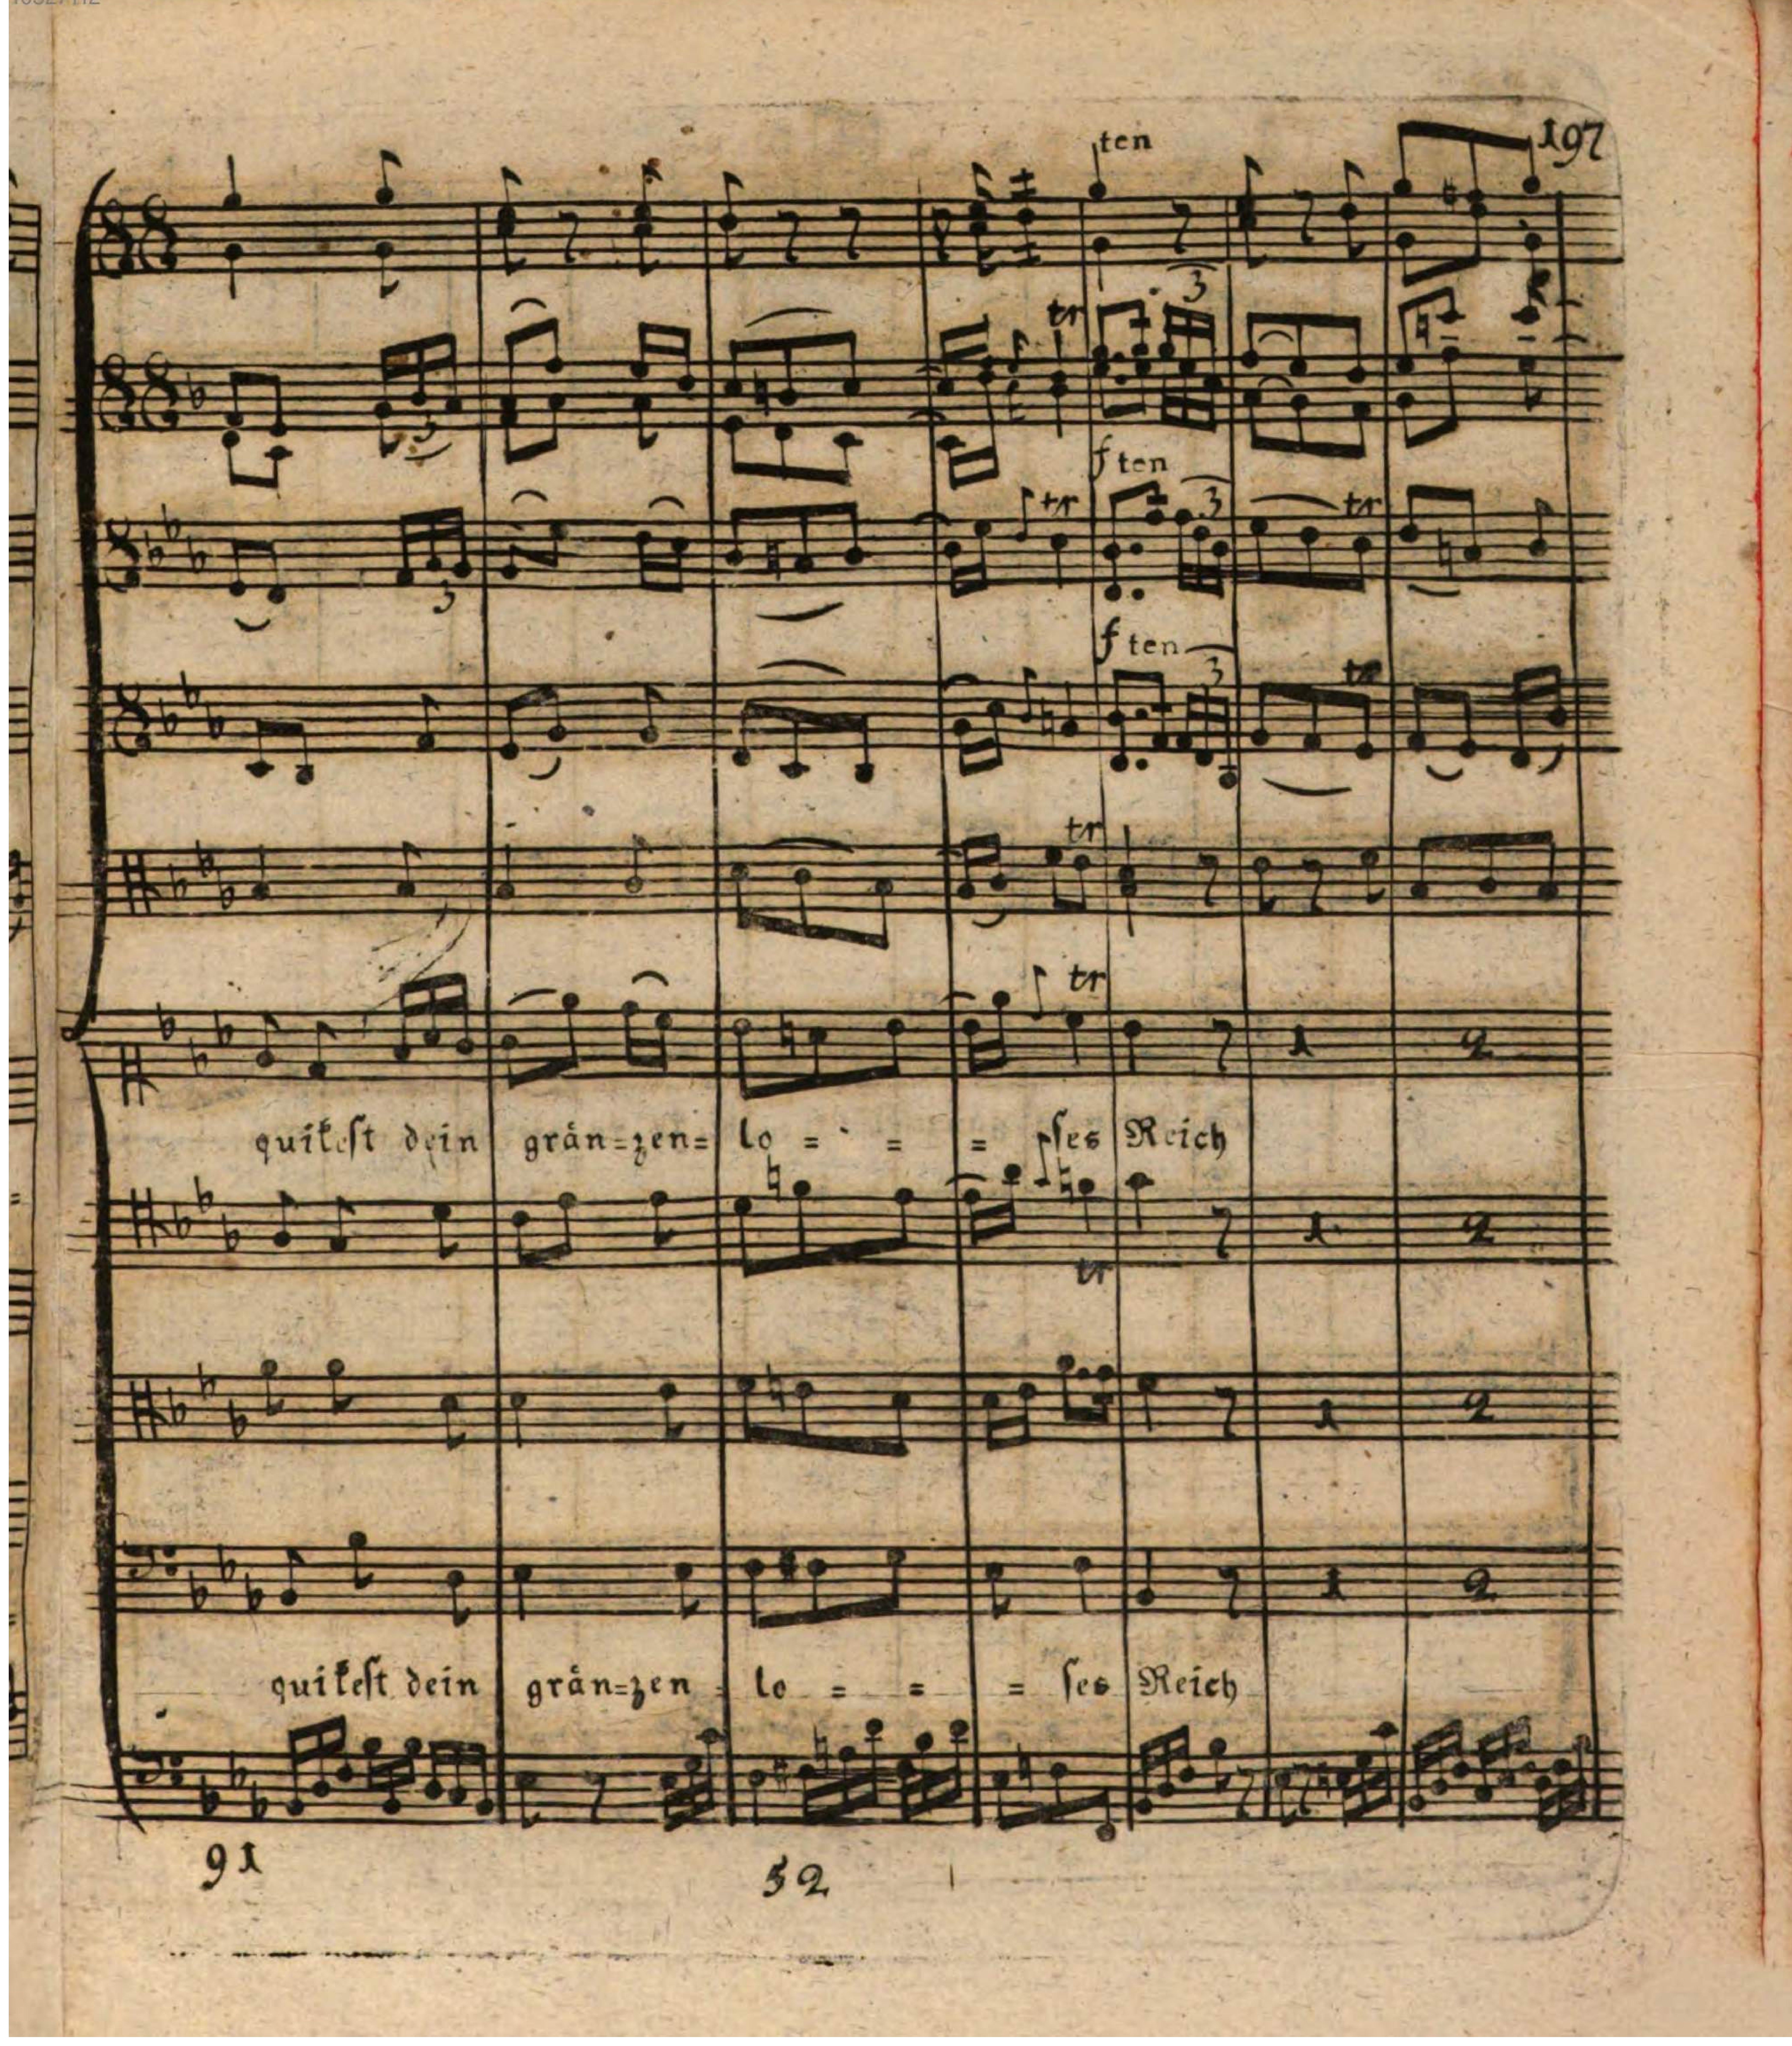 197
ten
tr 3
3 f ten
tr 3 tr
3
f ten 3
tr
tr
tr
quikeſt dein grän=zen= lo = = = ſes Reich
tr
quikeſt dein grän=zen = lo = = = ſes Reich
91 52